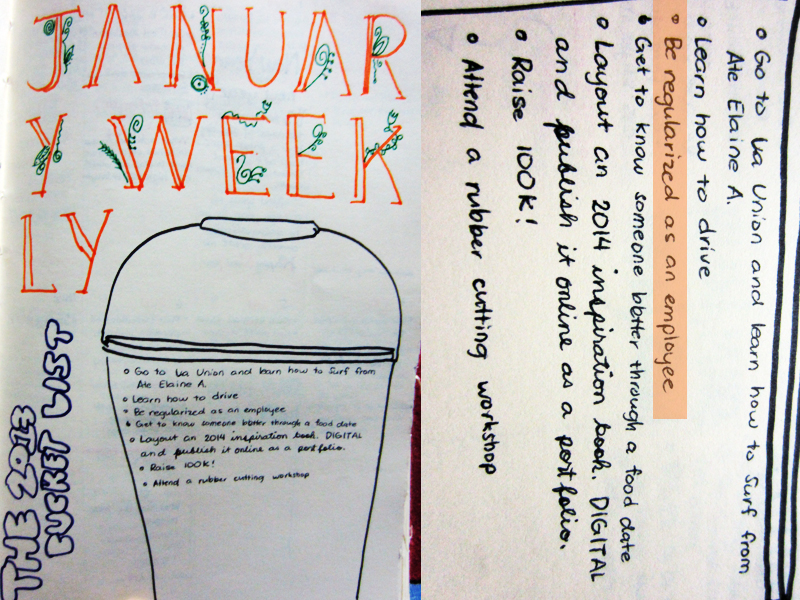 JANUAR
Y WEEK
LY
THE 2013
BUCKET LIST
Go to La Union and learn how to surf from
Ate Elaine A.
Learn how to drive
Be regularized as an employee
Get to know someone bbtter through a food date
Layout an 2014 inspiration book. DIGITAL
and publish it online as a portfolio.
Raise 100K!
Attend a rubber cutting workshop
Go to La Union and learn how to surf from
Ate Elaine A.
Learn how to drive
Be regularized as an employee
Get to know someone bbtter through a food date
Layout an 2014 inspiration book. DIGITAL
and publish it online as a portfolio.
Raise 100K!
Attend a rubber cutting workshop